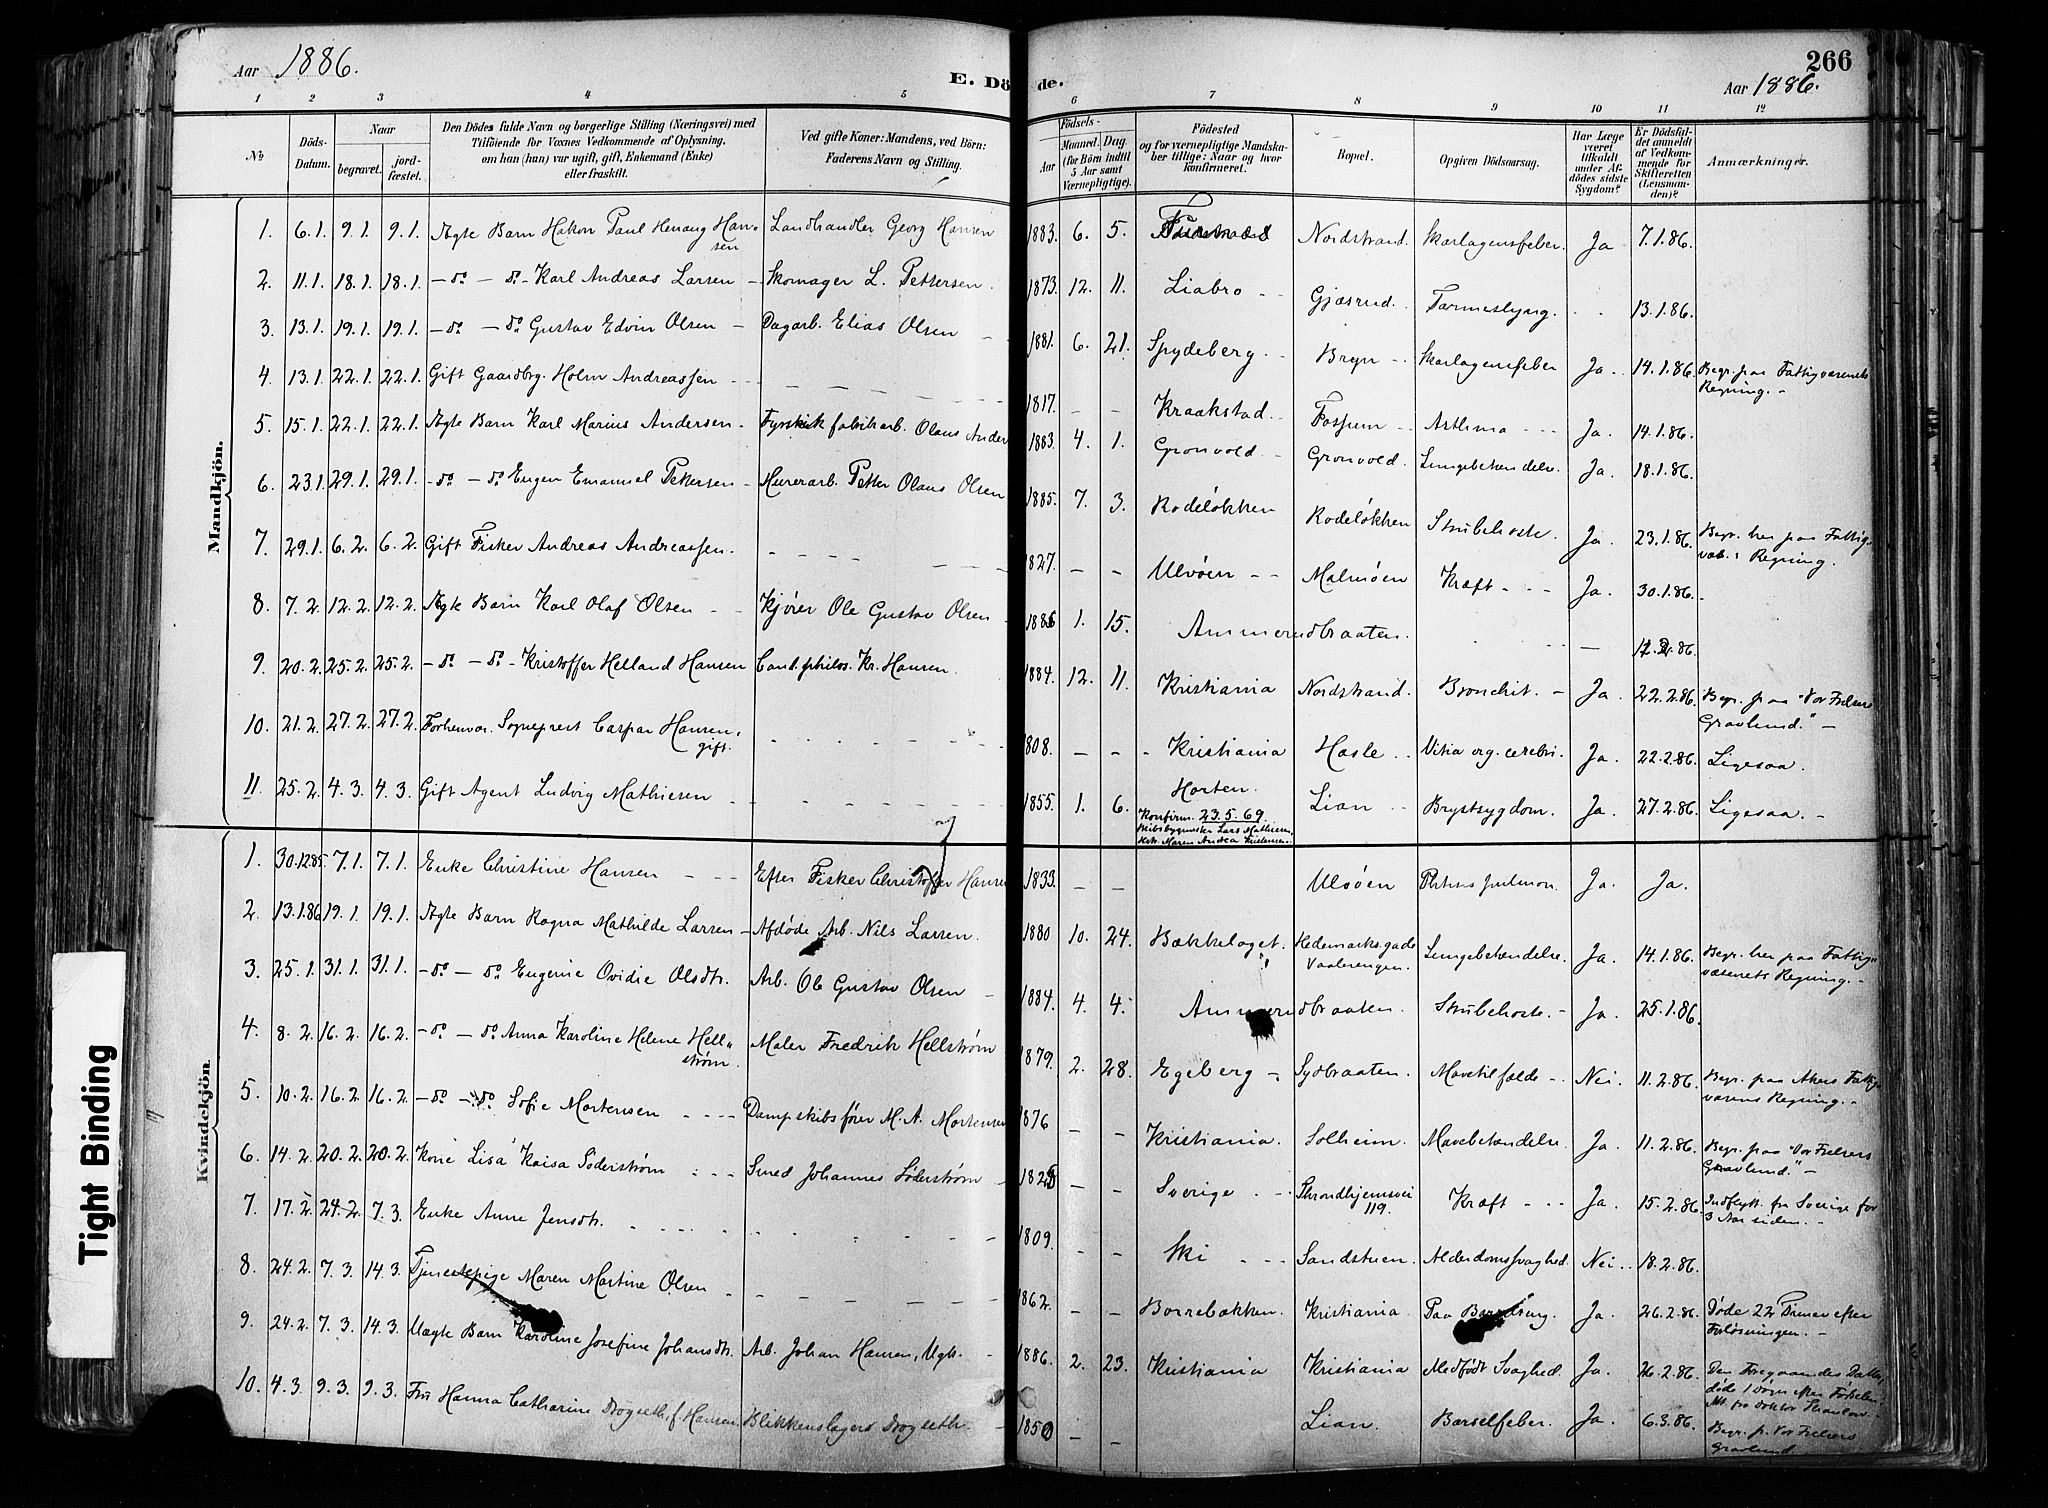 Aar 1886.
E. Dö de.
266
Aar 1886.
1 2 3 4 5 6 7 8 9 10 11 12
No
Döds-Datum.
Naar
begravet.
jord-fæstet.
Den Dödes fulde Navn og borgerlige Stilling (Næringsvei) med
Tilföiende for Voxnes Vedkommende af Oplysning,
om han (hun) var ugift, gift, Enkemand (Enke)
eller fraskilt.
Ved gifte Koner: Mandens, ved Börn:
Faderens Navn og Stilling.
Födsels-
Aar
Maaned. Dag
(for Börn indtil
5 Aar samt
Værnepligtige).
Födested
og for værnepligtige Mandska-
ber tillige: Naar og hvor
konfirmeret.
Bopæl.
Opgiven Dödsaarsag.
Har Læge
været
tilkaldt
under Af-
dödes sidste
Sygdom?
Er Dödsfal-
det anmeldt
af Vedkom-
mende for
Skifteretten
(Lensman-
den)?
Anmærkninger.
Mandkjön.
1. 6.1. 9.1. 9.1. Ægte Barn Hakon Paul Henang Han-sen Landhandler Georg Hansen 1883. 6. 5. Nordstrand. Skarlagensfeber. Ja 7.1.86.
2. 11.1. 18.1. 18.1. -do- -do- Karl Andreas Larsen - Skomager L. Pettersen. 1873. 12. 11. Liabro Gjæsrud. Tarmeslyng. 13.1.86.
3. 13.1. 19.1. 19.1. -do -do Gustav Edvin Olsen - Dagarb. Elias Olsen 1881. 6. 21. Spydeberg. Bryn Skarlagensfeber Ja. 14.1.86. Begr. paa Fattigvæsenets
Regning. -
4. 13.1. 22.1. 22.1. Gift Gaardbrg. Holm Andreassen 1817. - - Kraakstad. Fossum Asthma Ja. 14.1.86.
5. 15.1. 22.1. 22.1. Ægte Barn Karl Marius Andersen - Fyrstikfabrikarb. Olaus Ander 1883. 4. 1. Grønvold. Grønvold. Lungebetændelse. Ja. 18.1.86.
6. 23.1. 29.1. 29.1. -do -do Eugen Emanuel Pettersen - Murerarb. Petter Olaus Olsen 1885. 7. 3. Rodeløkken Rodeløkken Strubehoste. Ja. 23.1.86. Begr. her paa Fattig-
væs: Regning.
7. 29.1. 6.2. 6.2. Gift Fisker Andreas Andreassen. 1827. - - Ulvøen Malmøen Kræft Ja. 30.1.86.
8. 7.2. 12.2. 12.2. Ægte Barn Karl Olaf Olsen Kjører Ole Gustav Olsen 1886 1. 15. Ammerudbraaten. - 12.2.86.
9. 20.2. 25.2. 25.2. -do- -do- Kristoffer Helland Hansen Cand. philos. Kr. Hansen. 1884. 12. 11. Kristiania Nordstrand. Bronchit. Ja. 22.2.86. Begr. paa "Vor Frelsers
Gravlund." -
10. 21.2. 27.2. 27.2. Forhenvær. Sogneprest Caspar Hansen, gift. 808. - - Kristiania Hasle Vitia org. cerebri. Ja. 22.2.86. Ligesaa.
11. 25.2. 4.3. 4.3. Gift Agent Ludvig Mathiesen 1855. 1. 6. Horten. Lian Brystsygdom. Ja. 27.2.86. Ligesaa. -
Konfirm. 23.5.69.
Skibsbygmester Lars Mathiesen.
Maren Andrea
Kvindekjön.
1. 30.12.85. 7.1. 7.1. Enke Christine Hansen Efter Fisker Christoffer Hansen 1833. - - Ulvøen Phthisis pulmon. Ja. Ja.
2. 13.1.86 19.1. 19.1. Ægte Barn Ragna Mathilde Larsen - Afdøde Arb. Nils Larsen. 1880 10. 24. Bækkelaget. Hedemarksgade
Vaalerengen. Lungebetændelse. Ja. 14.1.86. Begr. her paa Fattig-
væsenets Regning. -
3. 25.1. 31.1. 31.1. -do - do Eugenie Ovidie Olsdtr. Arb. Ole Gustav Olsen 1884. 4. 4. Ammerudbraaten. Strubehoste. Ja. 25.1.86.
4. 8.2. 16.2. 16.2. -do - do Anna Karoline Helene Hell-
strøm. Maler Fredrik Hellstrøm 1879. 2. 28. Egeberg Sydbraaten. Mavetilfælde Nei. 11.2.86. Begr. paa Akers Fattig-
væsens Regning. -
5. 10.2. 16.2. 16.2. -do - do Sofie Mortensen Dampskibsfører M. A. Mortensen 1876 - - Kristiania. Solheim. Mavebetændelse. Ja. 11.2.86. Begr. paa "Vor Frelsers
Gravlund." -
6. 14.2. 20.2. 20.2. Kone Lisa Kaisa Söderstrøm Smed Johannes Söderstrøm - - Sverige Throndhjemsvei
119. Kræft Ja. 15.2.86. Indflytt. fra Sverige for
3 Aar siden. -
7. 17.2. 24.2. 7.3. Enke Anne Jensdtr. 1809. - - Ski Sandstuen Alderdomssvaghed. Nei 18.2.86.
8. 24.2. 7.3. 14.3. Tjenestepige Maren Martine Olsen 1862. - - Borrebækken. Kristiania. Paa Barselseng. Ja. 26.2.86. Døde 22 Timer efter
Forløsningen. -
9. 24.2. 7.3. 14.3. Uægte Barn Karoline Josefine Johansdtr. Arb. Johan Hansen, Ugift. 1886. 2. 23. Kristiania Kristiania Medfødt Svaghed. Ja. 26.2.86. Den Foregaaendes Datter,
døde 1 Døgn efter Fødselen
Att. fra Doktor
10. 4.3. 9.3. 9.3. Fru Hanna Catharine Drogseth, f. Hansen. Blikkenslager Drogseth 1850 - - Lian. Barselfeber. Ja. 6.3.86. Begr. p. Vor Frelsers
Gravlund
Tight Binding